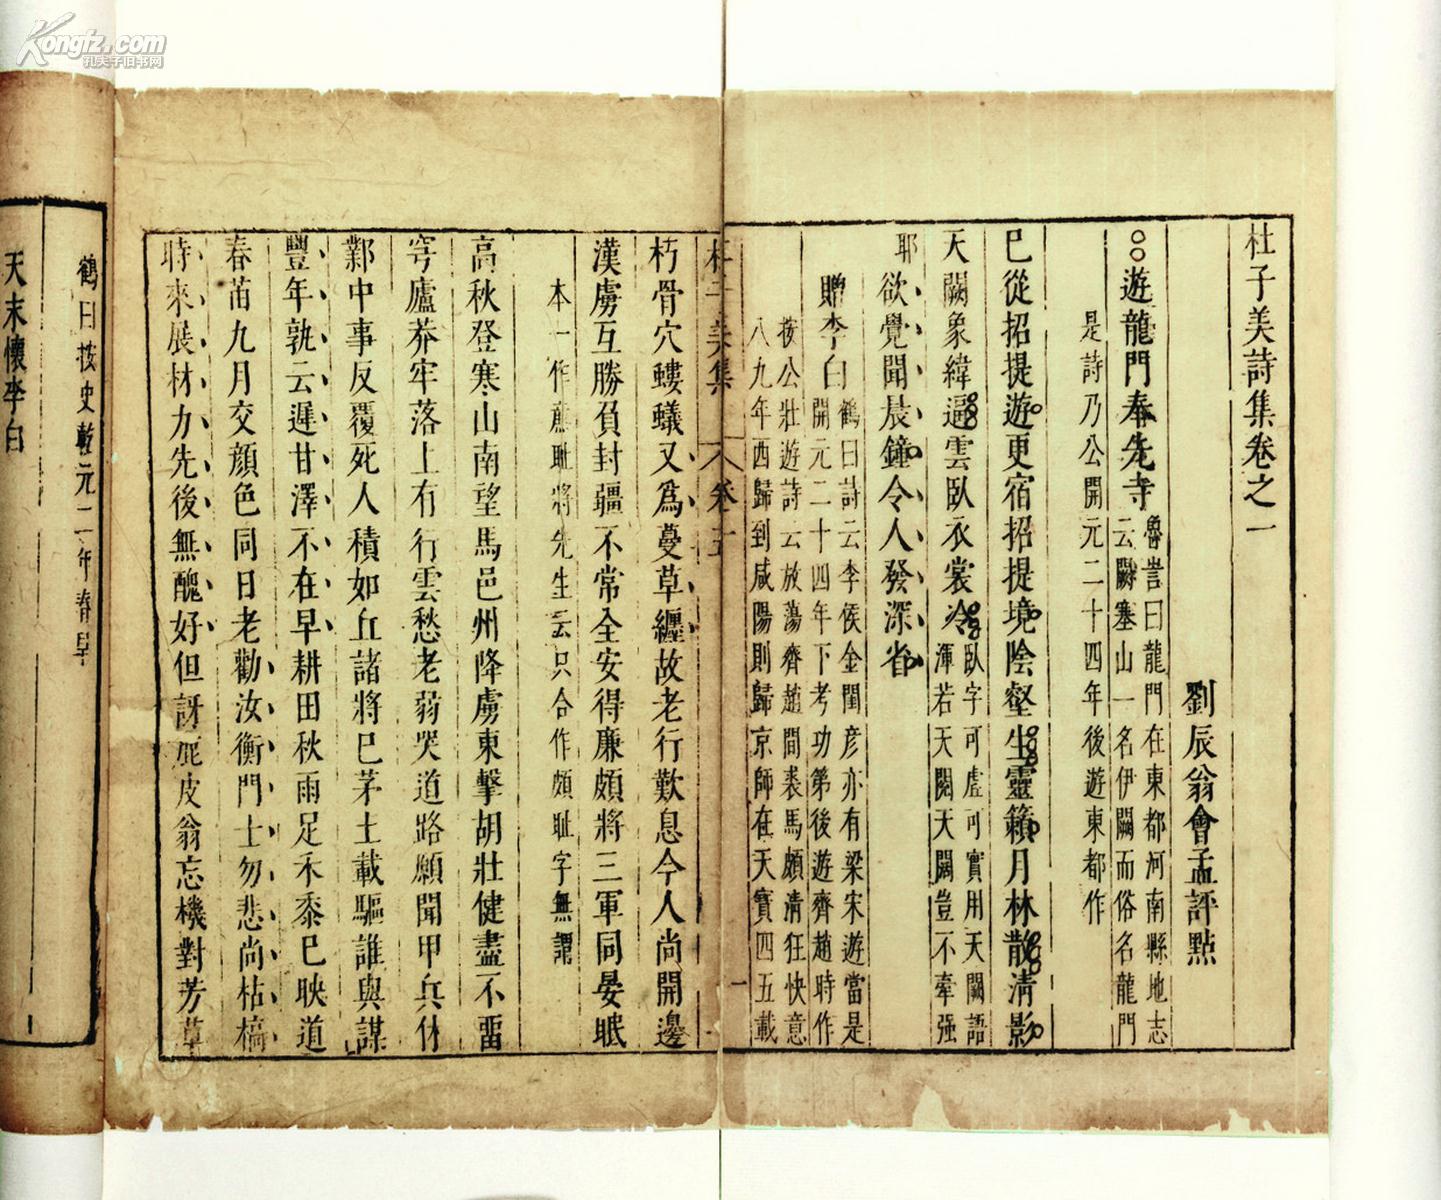 Kongfz.com
孔夫子旧书网
杜子美詩集卷之一
劉辰翁會孟評點
遊龍門奉先寺
魯訔曰龍門在東都河南縣地志
云闕塞山一名伊闕而俗名龍門
是詩乃公開元二十四年後遊東都作
已從招提遊更宿招提境陰壑生靈籟月林散清影
天闕象緯逼雲臥衣裳冷
臥字可虛可實用天闕語
渾若天閱天闚豈不牽强
耶
欲覺聞晨鐘令人發深省
贈李白
鶴曰詩云李侯金閨彥亦有梁宋遊當是
開元二十四年下考功第後遊齊趙時作
按公壯遊詩云放蕩齊趙間裘馬頗清狂快意
八九年西歸到咸陽則歸京師在天寶四五載
一
美集
朽骨穴螻蟻又爲蔓草纏故老行歎息今人尚開邊
漢虜互勝負封疆不常全安得廉頗將三軍同晏眠
本一作廉耻將先生云只合作頗耻字無謂
高秋登寒山南望馬邑州降虜東擊胡壯健盡不留
穹廬莽牢落上有行雲愁老弱哭道路願聞甲兵休
鄴中事反覆死人積如丘諸將已茅土載驅誰與謀
豐年孰云遲甘澤不在早耕田秋雨足禾黍已映道
春苗九月交顏色同日老勸汝衡門士勿悲尚枯槁
時來展材力先後無醜好但訝鹿皮翁忘機對芳草
鶴曰按史乾元二年春旱
天末懷李白